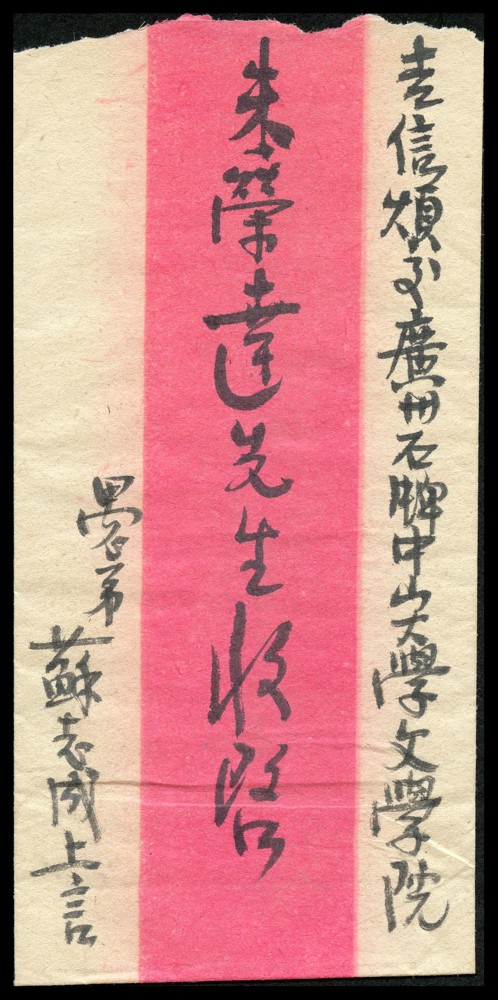 吉信煩交廣州石牌中山大學文學院
朱榮達先生收啓
愚弟
蘇志成上言